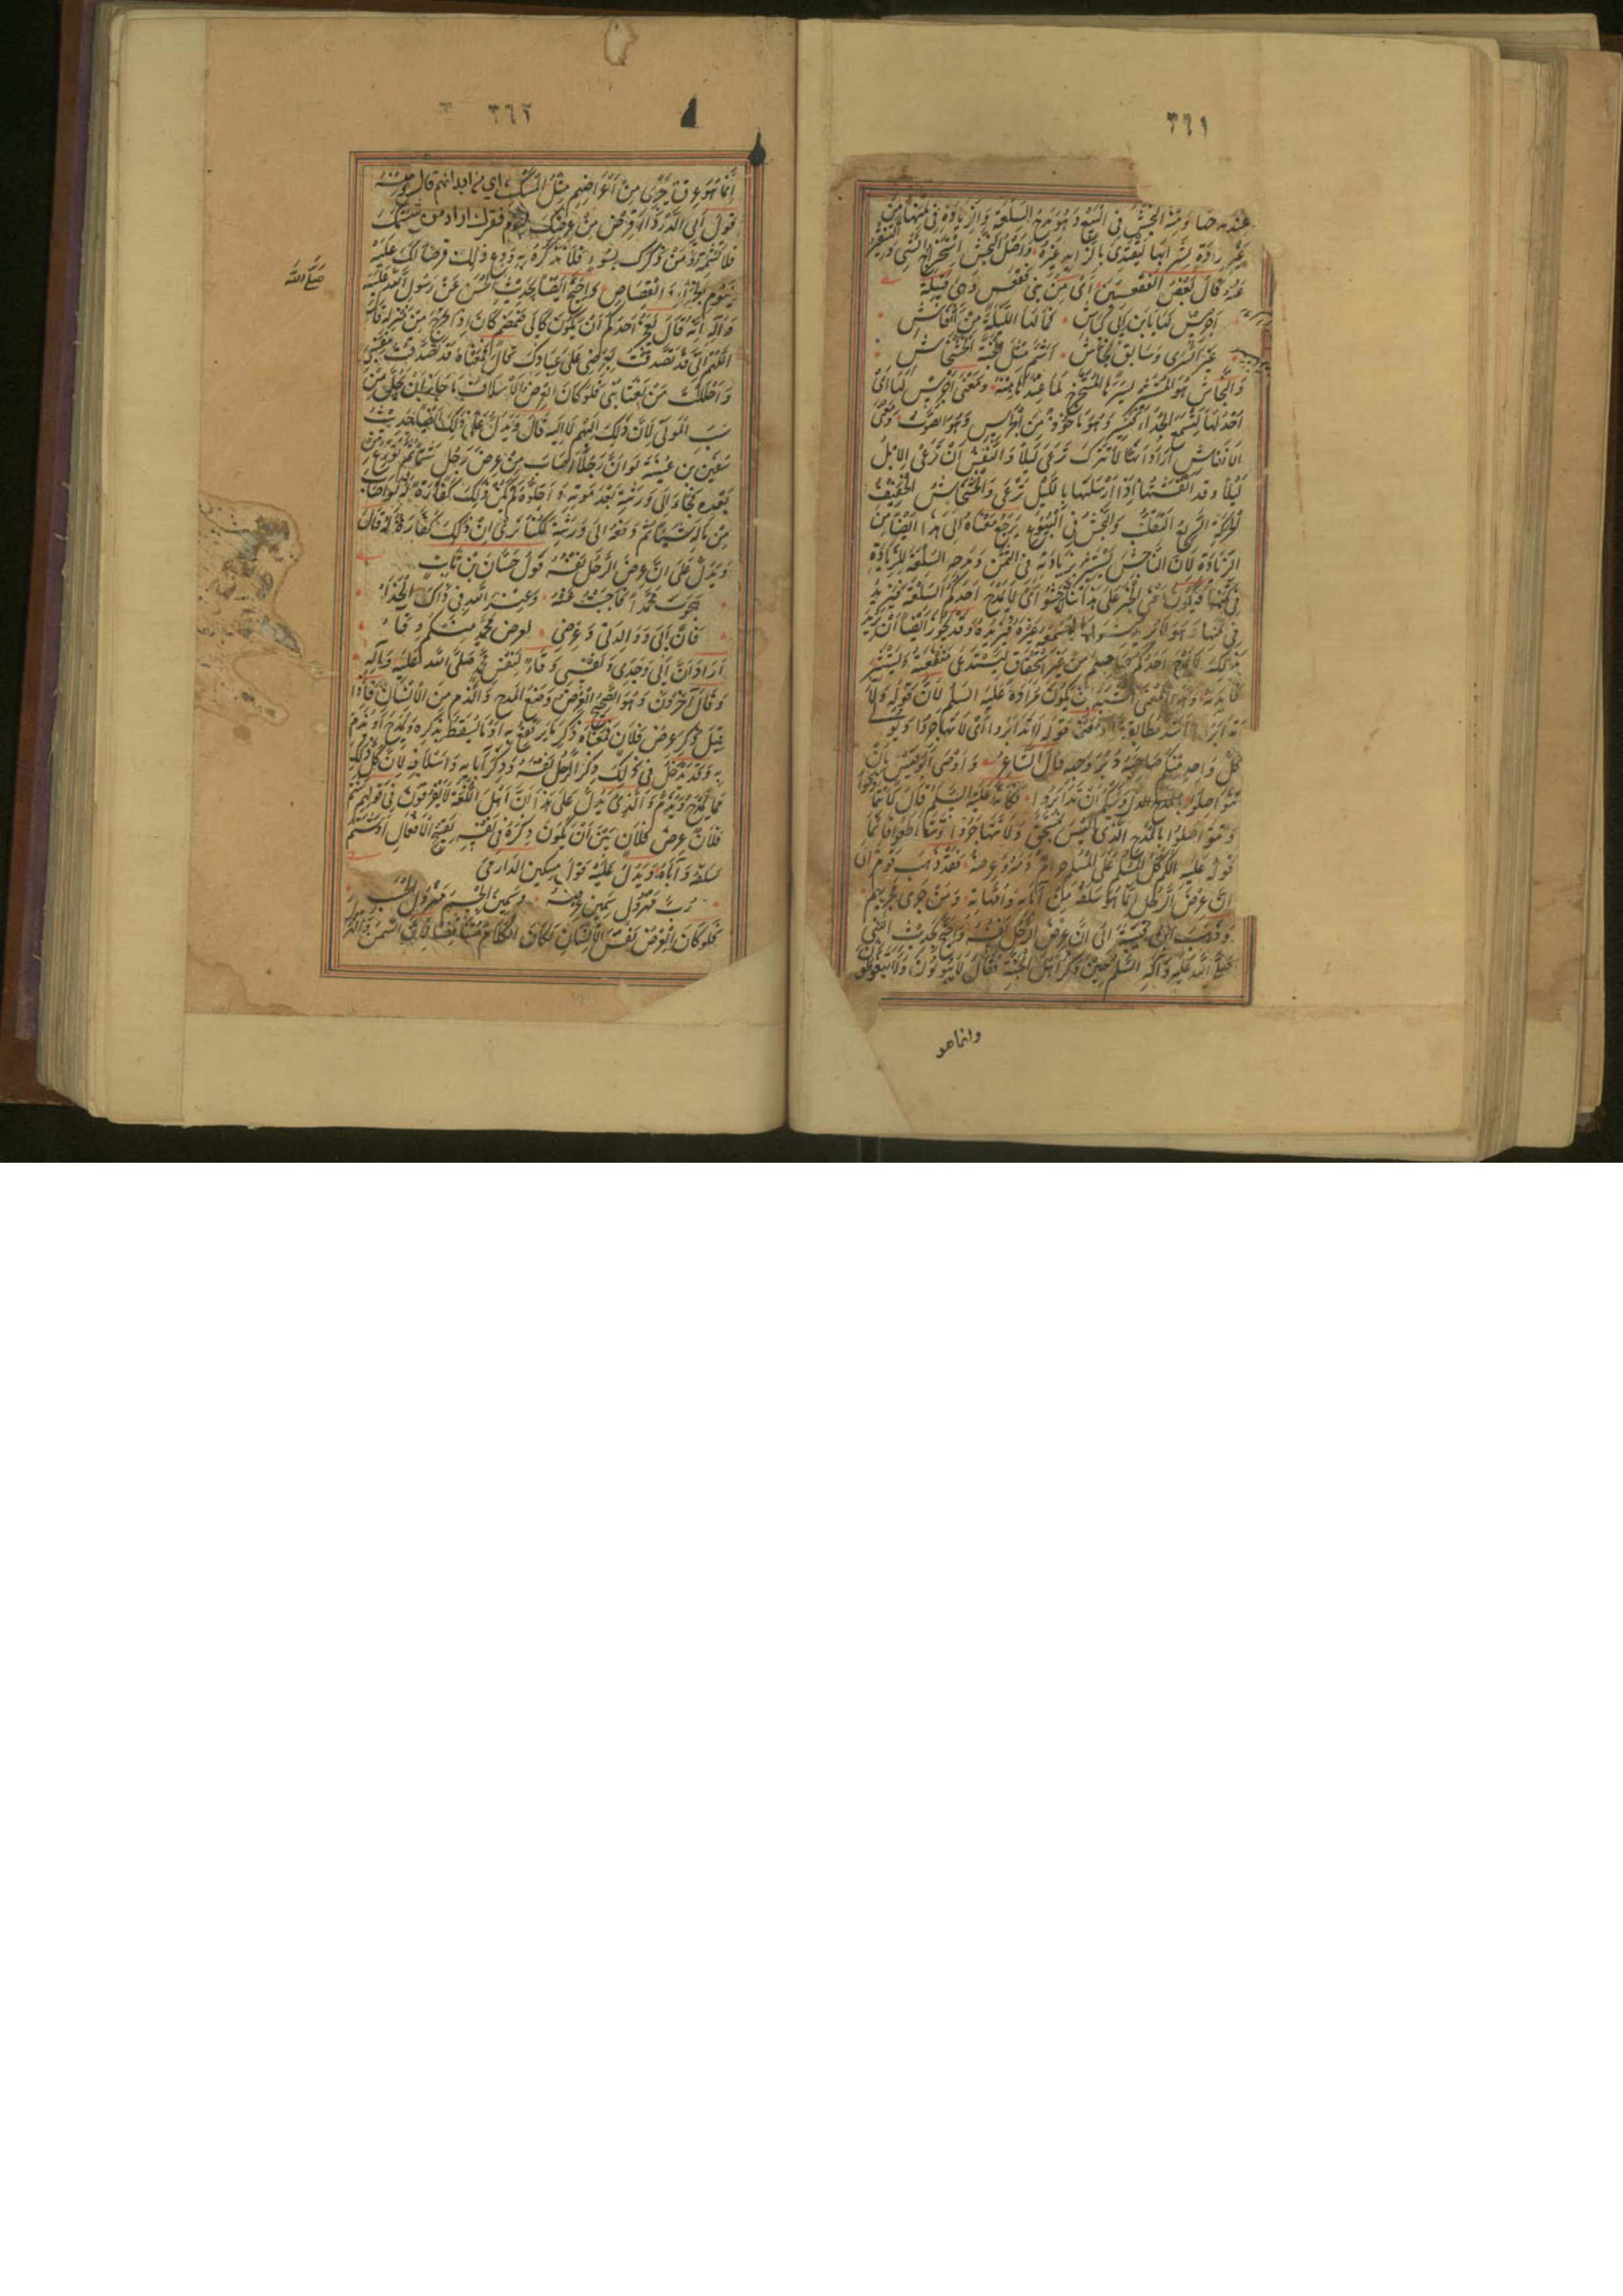 ٣٦١
عنده خبا ومنه النجش في البيع وهو مدح السلعة والزيادة في ثمنها من
غير ارادة لشرائها ليقتدي بالزايد غيره واصل النجش استخراج الشيء
غيره وقال بعض الفقعسيين اي من بني فقعس وهي قبيلة
اجرس لها يا ابن ابي كباش فما لها الليلة من انفاش
غير السرى وسايق نجاش اسمر مثل الحية الخشخاش
والنجاش هو المستثير لسيرها المستخرج لما عنده منه ومعنى اجرس لها اي
احد لها لتسمع الحداء فتسير وهو ماخوذ من الجرس وهو الصوت ومعنى
الانفاش اراد انها لا تترك ترعى ليلا والنفش ان ترعى الابل
ليلا وقد انفشتها اذا ارسلتها بالليل ترعى والخشخاش الخفيف
الحركة السريع التقلب والنجش في البيوع يرجع معناه الى هذا ايضا من
الزيادة لان الناجش يستثير بزيادته في الثمن ومدحه السلعة للزيادة
في ثمنها فيكون معنى الخبر على هذا لا تناجشوا اي لا يمدح احدكم السلعة فيزيد
في ثمنها وهو لا يريد شراءها ليسمعه غيره فيزيده وقد يجوز ايضا ان يريد
بذلك لا يمدح احدكم صاحبه من غير استحقاق ليستدعي منفعته ويستثير
فايدته وهذا المعنى اشبه بان يكون مراده عليه السلم لان قوله ولا
تدابروا اشد مطابقة ومعنى قوله لا تدابروا اي لا تهاجروا ويولي
كل واحد منكم صاحبه دبر وجهه قال الشاعر واوصى ابو قيس بان
تتواصلوا واوصى ابوكم ويحكم ان تدابروا فكانه عليه السلم قال لا تتمادحوا
وتتواصلوا بالمدح الذي ليس بمستحق ولا تتهاجروا وتتقاطعوا فاما
قوله عليه السلم كل المسلم على المسلم حرام دمه وعرضه فقد ذهب قوم الى
ان عرض الرجل انما هو سلفه من آبائه وامهاته ومن جرى مجريهم
وذهب ابن قتيبة الى ان عرض الرجل نفسه واحتج بحديث النبي
صلى الله عليه وآله السلم حين ذكر اهل الجنة فقال لا يبولون ولا يتغوطون
وانما هو
٣٦٢
انما هو عرق يجري من اعراضهم مثل المسك اي من ابدانهم قال ومنه
قول ابي الدرداء اقرض من عرضك ليوم فقرك اراد من شتمك
فلا تشتمه ومن ذكرك بسوء فلا تذكره به ودع ذلك قرضا لك عليه
ليوم الجزاء والقصاص واحتج ايضا بحديث الحسن عن رسول الله صلى الله عليه
وآله انه قال ايعجز احدكم ان يكون كابي ضمضم كان اذا خرج من منزله قال
اللهم اني قد تصدقت بعرضي على عبادك قال معناه قد تصدقت بنفسي
واحللت من يغتابني فلو كان العرض الاسلاف ما جاز ان يحل من
سب الموتى لان ذلك اليهم لا اليه قال ويدل على ذلك ايضا حديث
سفين بن عيينة لو ان رجلا اصاب من عرض رجل شيئا ثم تورع من
بعده فجاء الى ورثته بعد موته واحلوه لم يكن ذلك كفارة له ولو اصاب
من ماله شيئا ثم دفعه الى ورثته لكنا نرى ان ذلك كفارة له قال
ويدل على ان عرض الرجل نفسه قول حسان بن ثابت
هجوت محمدا فاجبت عنه وعند الله في ذاك الجزاء
فان ابي ووالدتي وعرضي لعرض محمد منكم وقاء
اراد ان ابي وجدي ونفسي وقاء لنفس محمد صلى الله عليه وآله
وقال آخرون وهو الصحيح العرض موضع المدح والذم من الانسان فاذا
قيل ذكر عرض فلان فمعناه ذكر ما يرتفع به او ما يسقط بذكره ويمدح او يذم
به وقد يدخل في ذلك ذكر الرجل نفسه وذكر آبائه واسلافه لان كل ذلك
مما يمدح ويذم والذي يدل على هذا ان اهل اللغة لا يفرقون في قولهم شتم
فلان عرض فلان بين ان يكون ذكره في نفسه بقبيح الافعال او شتم
سلفه وآباءه ويدل عليه قول مسكين الدارمي
رب مهزول سمين عرضه وسمين الجسم مهزول الحسب
فلو كان العرض نفس الانسان لكان الكلام متناقضا لان السمن والهزال
صلى الله